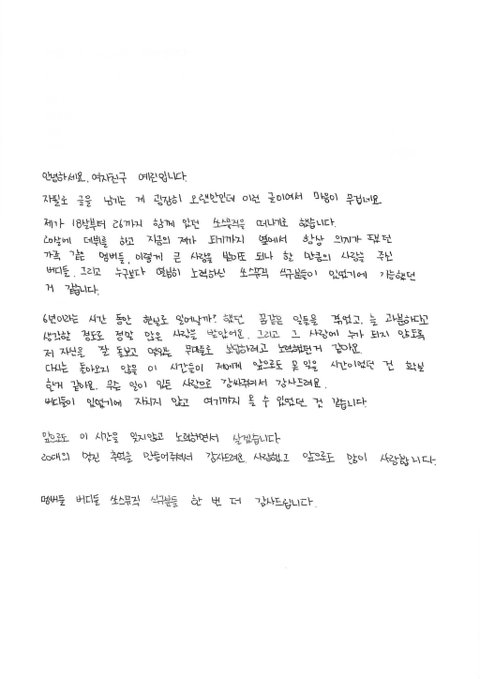 안녕하세요. 여자친구 예린입니다.
자필로 글을 남기는 게 굉장히 오랜만인데 이런 글이여서 마음이 무겁네요.
제가 18살부터 26까지 함께 있던 쏘스뮤직을 떠나게로 했습니다.
20살에 데뷔를 하고 지금의 제가 되기까지 옆에서 항상 의지가 됐던
가족 같은 멤버들, 이렇게 큰 사랑을 받아도 되나 할 만큼의 사랑을 주신
버디들, 그리고 누구보다 열심히 노력하신 쏘스뮤직 식구분들이 있었기에 가능했던
거 같습니다.
6년이라는 시간 동안 현실로 일어날까? 했던 꿈같은 일들을 겪었고, 늘 과분하다고
생각할 정도로 정말 많은 사랑을 받았어요. 그리고 그 사랑에 누가 되지 않도록
저 자신을 잘 돌보고 멋있는 무대들로 보답하려고 노력했던거 같아요.
다시는 돌아오지 않을 이 시간들이 저에게 앞으로도 못 잊을 시간이었던 건 확실
한거 같아요. 무슨 일이 있든 사랑으로 감싸줘서 감사드려요.
버디들이 있었기에 지치지 않고 여기까지 올 수 있었던 건 같습니다.
앞으로도 이 시간을 잊지않고 노력하면서 살겠습니다
20대의 멋진 추억을 만들어주셔서 감사드려요. 사랑했고 앞으로도 많이 사랑합니다.
멤버들 버디들 쏘스뮤직 식구분들 한 번 더 감사드립니다.